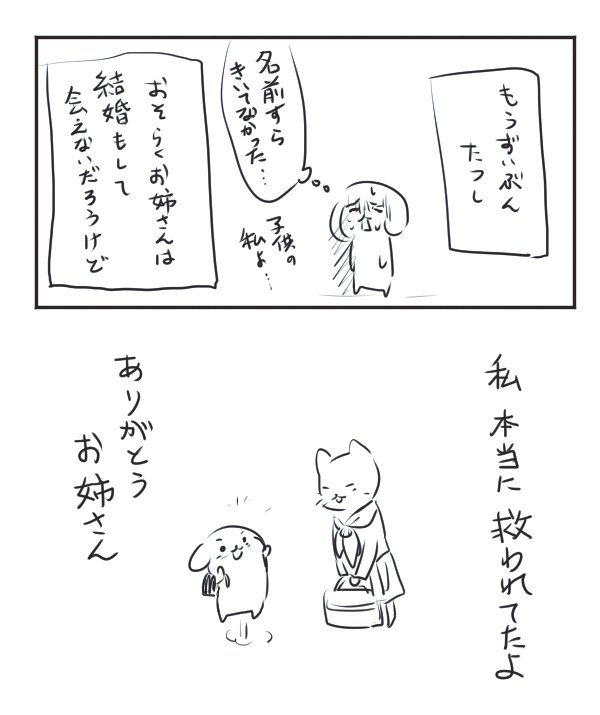 もうずいぶん
たつし
名前すら
きいてなかった…
子供の
私よ…
おそらくお姉さんは
結婚もして
会えないだろうけど
私本当に救われてたよ
ありがとう
お姉さん